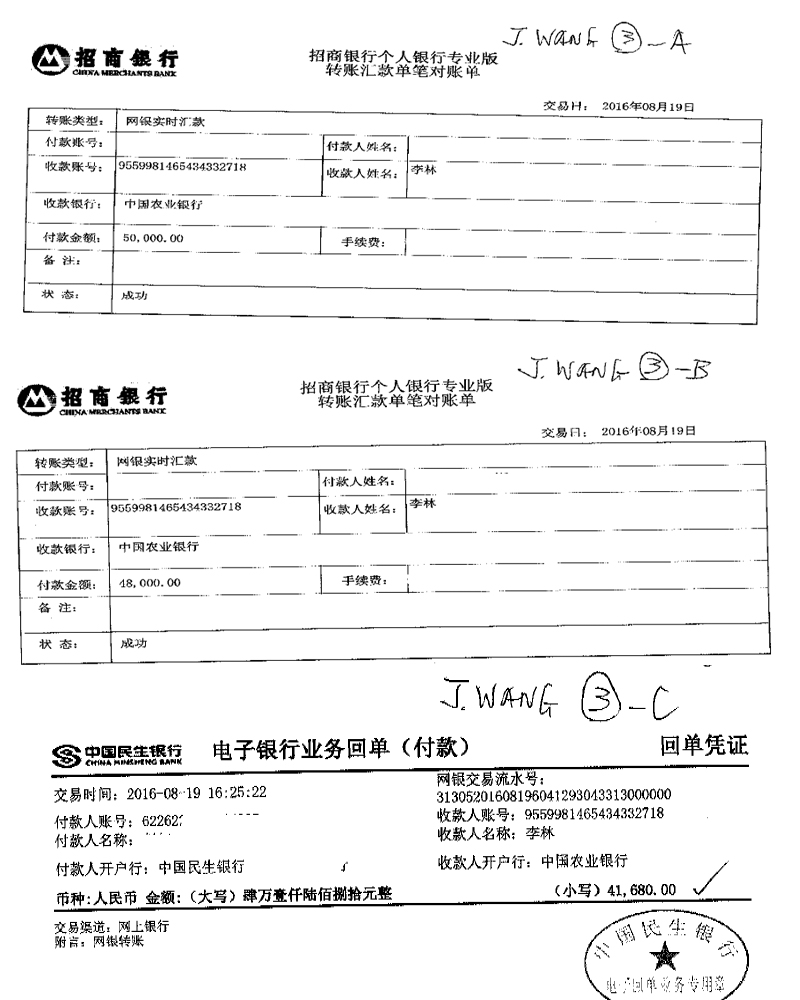 J. WANG ③-A
招商银行
CHINA MERCHANTS BANK
招商银行个人银行专业版
转账汇款单笔对账单
交易日: 2016年08月19日
转账类型: 网银实时汇款
付款账号: 付款人姓名:
收款账号: 9559981465434332718 收款人姓名: 李林
收款银行: 中国农业银行
付款金额: 50,000.00 手续费:
备 注:
状 态: 成功
J. WANG ③-B
招商银行
CHINA MERCHANTS BANK
招商银行个人银行专业版
转账汇款单笔对账单
交易日: 2016年08月19日
转账类型: 网银实时汇款
付款账号: 付款人姓名:
收款账号: 9559981465434332718 收款人姓名: 李林
收款银行: 中国农业银行
付款金额: 48,000.00 手续费:
备 注:
状 态: 成功
J. WANG ③-C
中国民生银行
CHINA MINSHENG BANK
电子银行业务回单（付款）
回单凭证
交易时间: 2016-08-19 16:25:22
网银交易流水号:
31305201608196041293043313000000
付款人账号: 62262
收款人账号: 9559981465434332718
付款人名称:
收款人名称: 李林
付款人开户行: 中国民生银行
收款人开户行: 中国农业银行
币种:人民币 金额:（大写）肆万壹仟陆佰捌拾元整 （小写）41,680.00
交易渠道: 网上银行
附言: 网银转账
中国民生银行
电子回单业务专用章